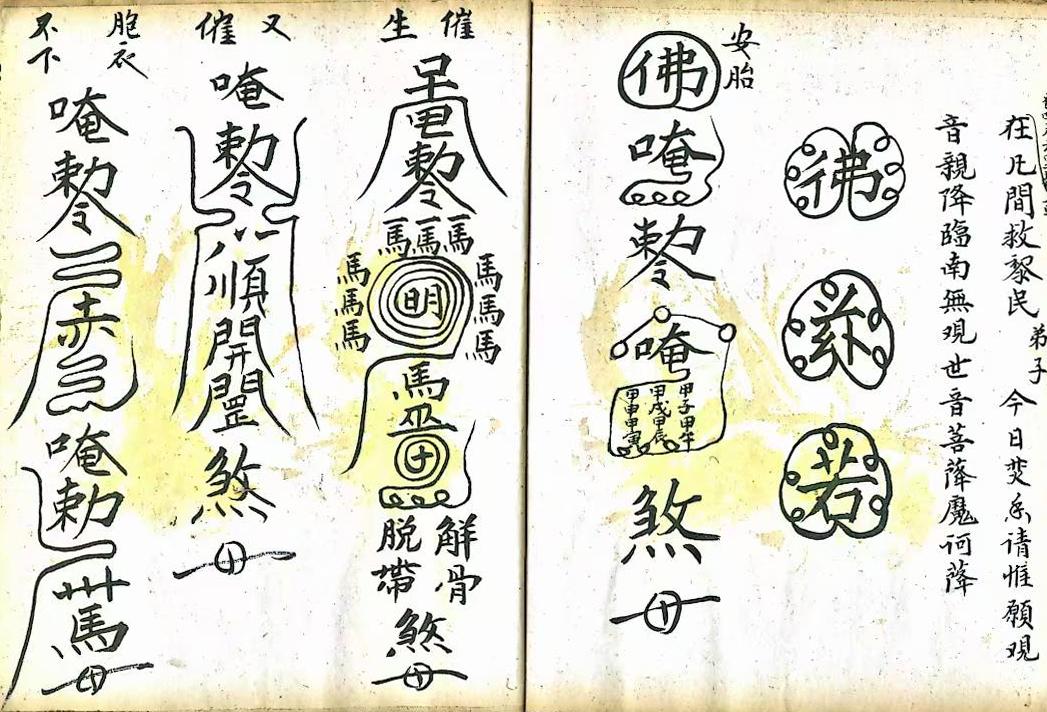 在凡間救黎民 弟子 今日焚香请惟願观
音親降臨南無观世音菩薩魔訶薩
佛
慈
若
安胎
佛
唵
勅令
唵
甲子甲午
甲戌甲辰
甲申甲寅
煞
催生
勅令
馬馬馬
馬馬馬
明
馬馬馬
馬
解骨
脱帶
煞
又催
唵
勅令
八
順
開
罡
煞
胞衣不下
唵
勅令
赤
唵
勅
馬